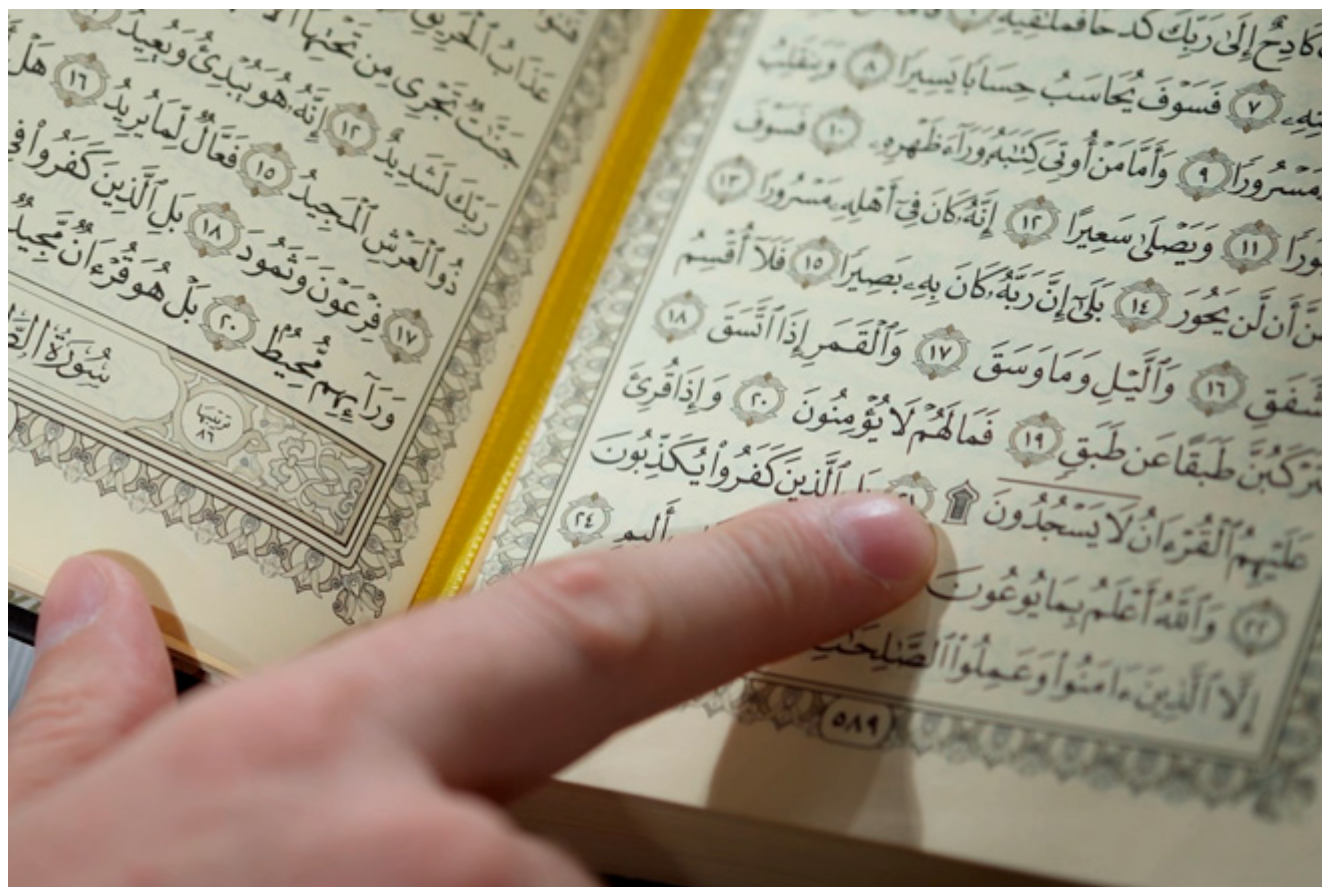 كَادِحٌ إِلَىٰ رَبِّكَ كَدْحًا فَمُلَٰقِيهِ
٧ فَسَوْفَ يُحَاسَبُ حِسَابًا يَسِيرًا ٨ وَيَنقَلِبُ
مَسْرُورًا ٩ وَأَمَّا مَنْ أُوتِىَ كِتَٰبَهُۥ وَرَآءَ ظَهْرِهِۦ ١٠ فَسَوْفَ
١١ وَيَصْلَىٰ سَعِيرًا ١٢ إِنَّهُۥ كَانَ فِىٓ أَهْلِهِۦ مَسْرُورًا ١٣
أَن لَّن يَحُورَ ١٤ بَلَىٰٓ إِنَّ رَبَّهُۥ كَانَ بِهِۦ بَصِيرًا ١٥ فَلَآ أُقْسِمُ
١٦ وَٱلَّيْلِ وَمَا وَسَقَ ١٧ وَٱلْقَمَرِ إِذَا ٱتَّسَقَ ١٨
طَبَقًا عَن طَبَقٍ ١٩ فَمَا لَهُمْ لَا يُؤْمِنُونَ ٢٠ وَإِذَا قُرِئَ
عَلَيْهِمُ ٱلْقُرْءَانُ لَا يَسْجُدُونَ ۩ ٢١ ٱلَّذِينَ كَفَرُوا۟ يُكَذِّبُونَ
٢٢ وَٱللَّهُ أَعْلَمُ بِمَا يُوعُونَ أَلِيمٍ ٢٤
إِلَّا ٱلَّذِينَ ءَامَنُوا۟ وَعَمِلُوا۟ ٱلصَّٰلِحَٰتِ
٥٨٩
عَذَابُ ٱلْحَرِيقِ
جَنَّٰتٌ تَجْرِى مِن تَحْتِهَا
رَبِّكَ لَشَدِيدٌ ١٢ إِنَّهُۥ هُوَ يُبْدِئُ وَيُعِيدُ
ذُو ٱلْعَرْشِ ٱلْمَجِيدُ ١٥ فَعَّالٌ لِّمَا يُرِيدُ ١٦ هَلْ
١٧ فِرْعَوْنَ وَثَمُودَ ١٨ بَلِ ٱلَّذِينَ كَفَرُوا۟ فِى
وَرَآئِهِم مُّحِيطٌ ٢٠ بَلْ هُوَ قُرْءَانٌ مَّجِيدٌ
ترتيبها ٨٦ سُورَةُ